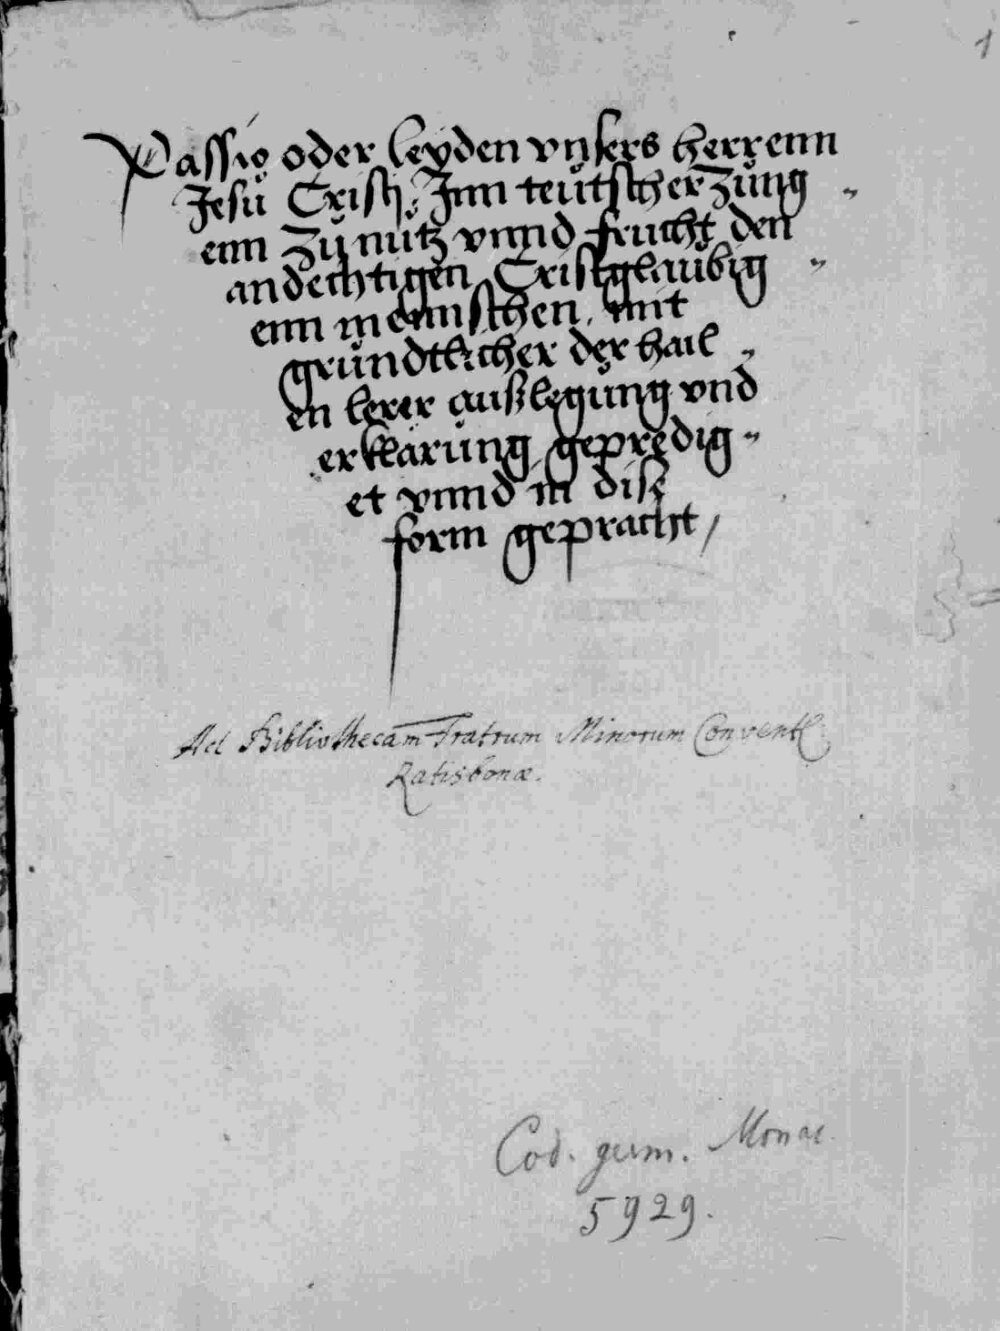 1
Passio oder leyden vnsers herrenn
Jesu Cristj, Jnn teutscher Zung„
enn Zu nutz vnnd frucht den
andechtigen Cristglaubig„
enn mennschen, mit
grundtlicher der hail„
en lerer außlegung vnd
erklarung gepredig„
et vnnd in dise
form gepracht,
Ad Bibliothecam Fratrum Minorum Conventl.
Ratisbonæ.
Cod. germ. Monac.
5929.